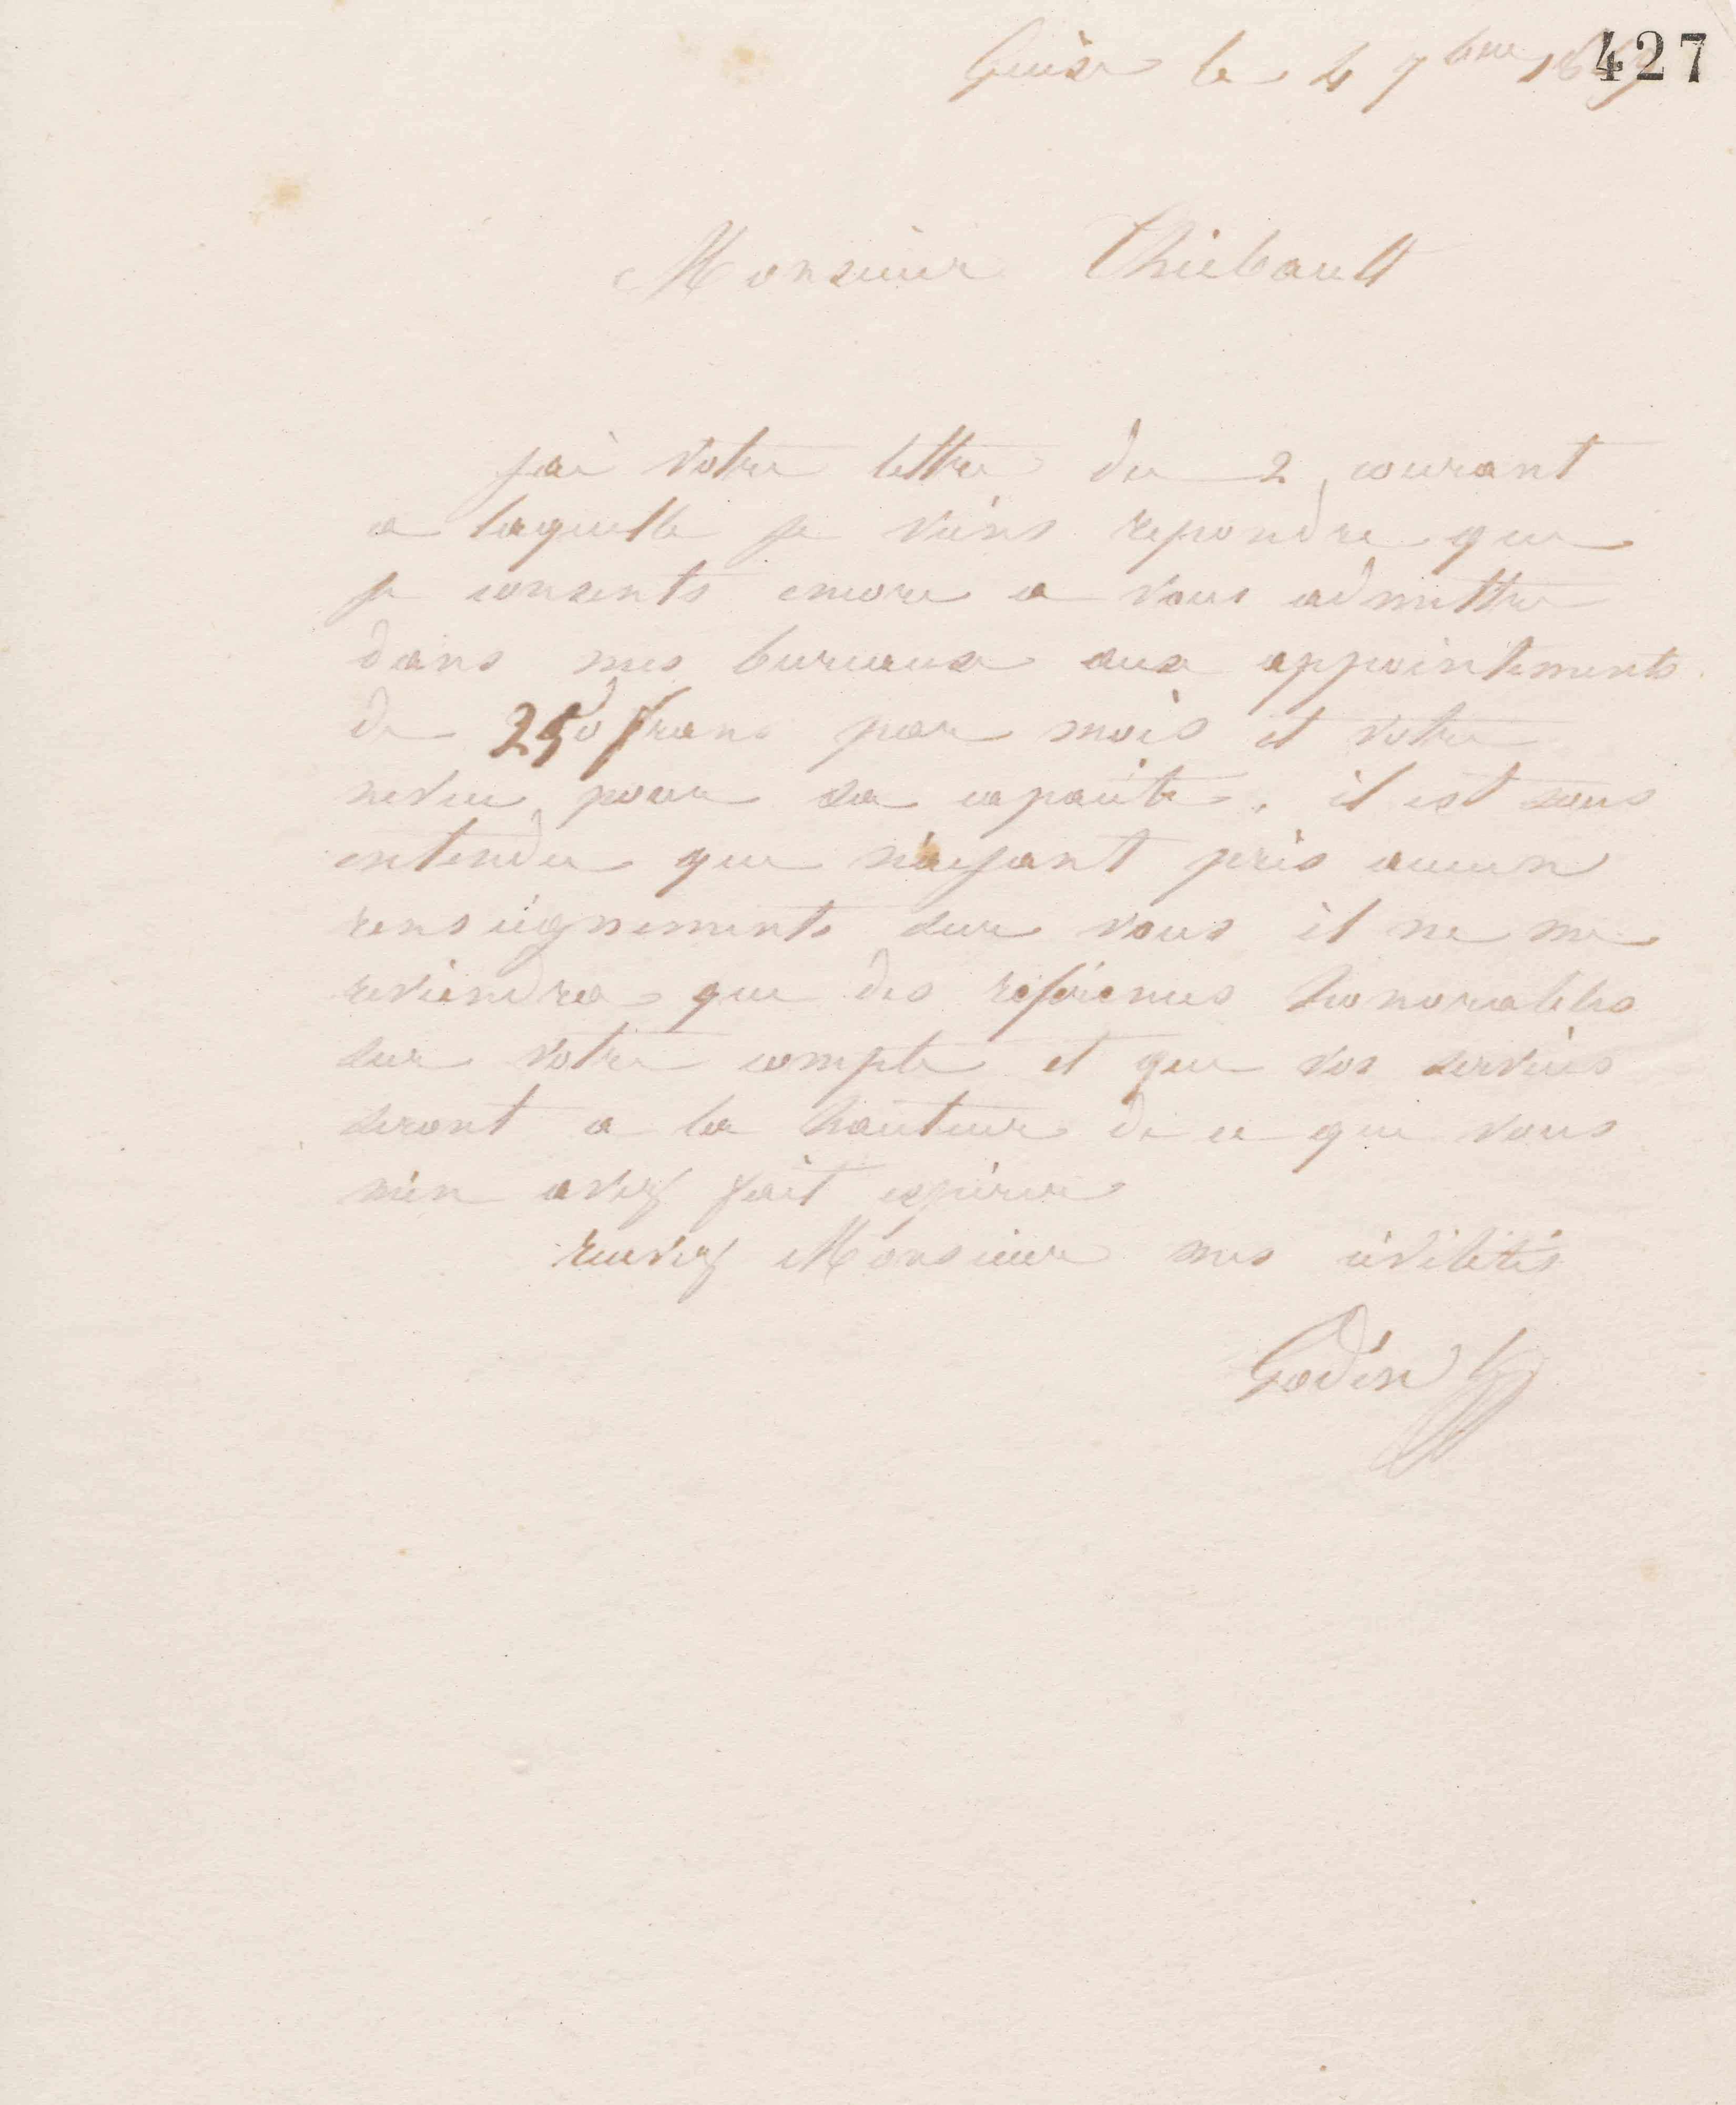 427
Guise le 4 7bre
Monsieur Thiebault
j'ai votre lettre du 2 courant
a laquelle je viens repondre que
je consents encore a vous admettre
dans mes bureaux aux appointements
de 250 franc par mois et votre
neveu pour sa capacité. il est sous
entendu que n'ayant pris aucun
renseignements sur vous il ne me
reviendra que des references honorables
sur votre compte et que vos services
seront a la hauteur de ce que vous
m'en avez fait espérer
recevez Monsieur mes civilités
Godin